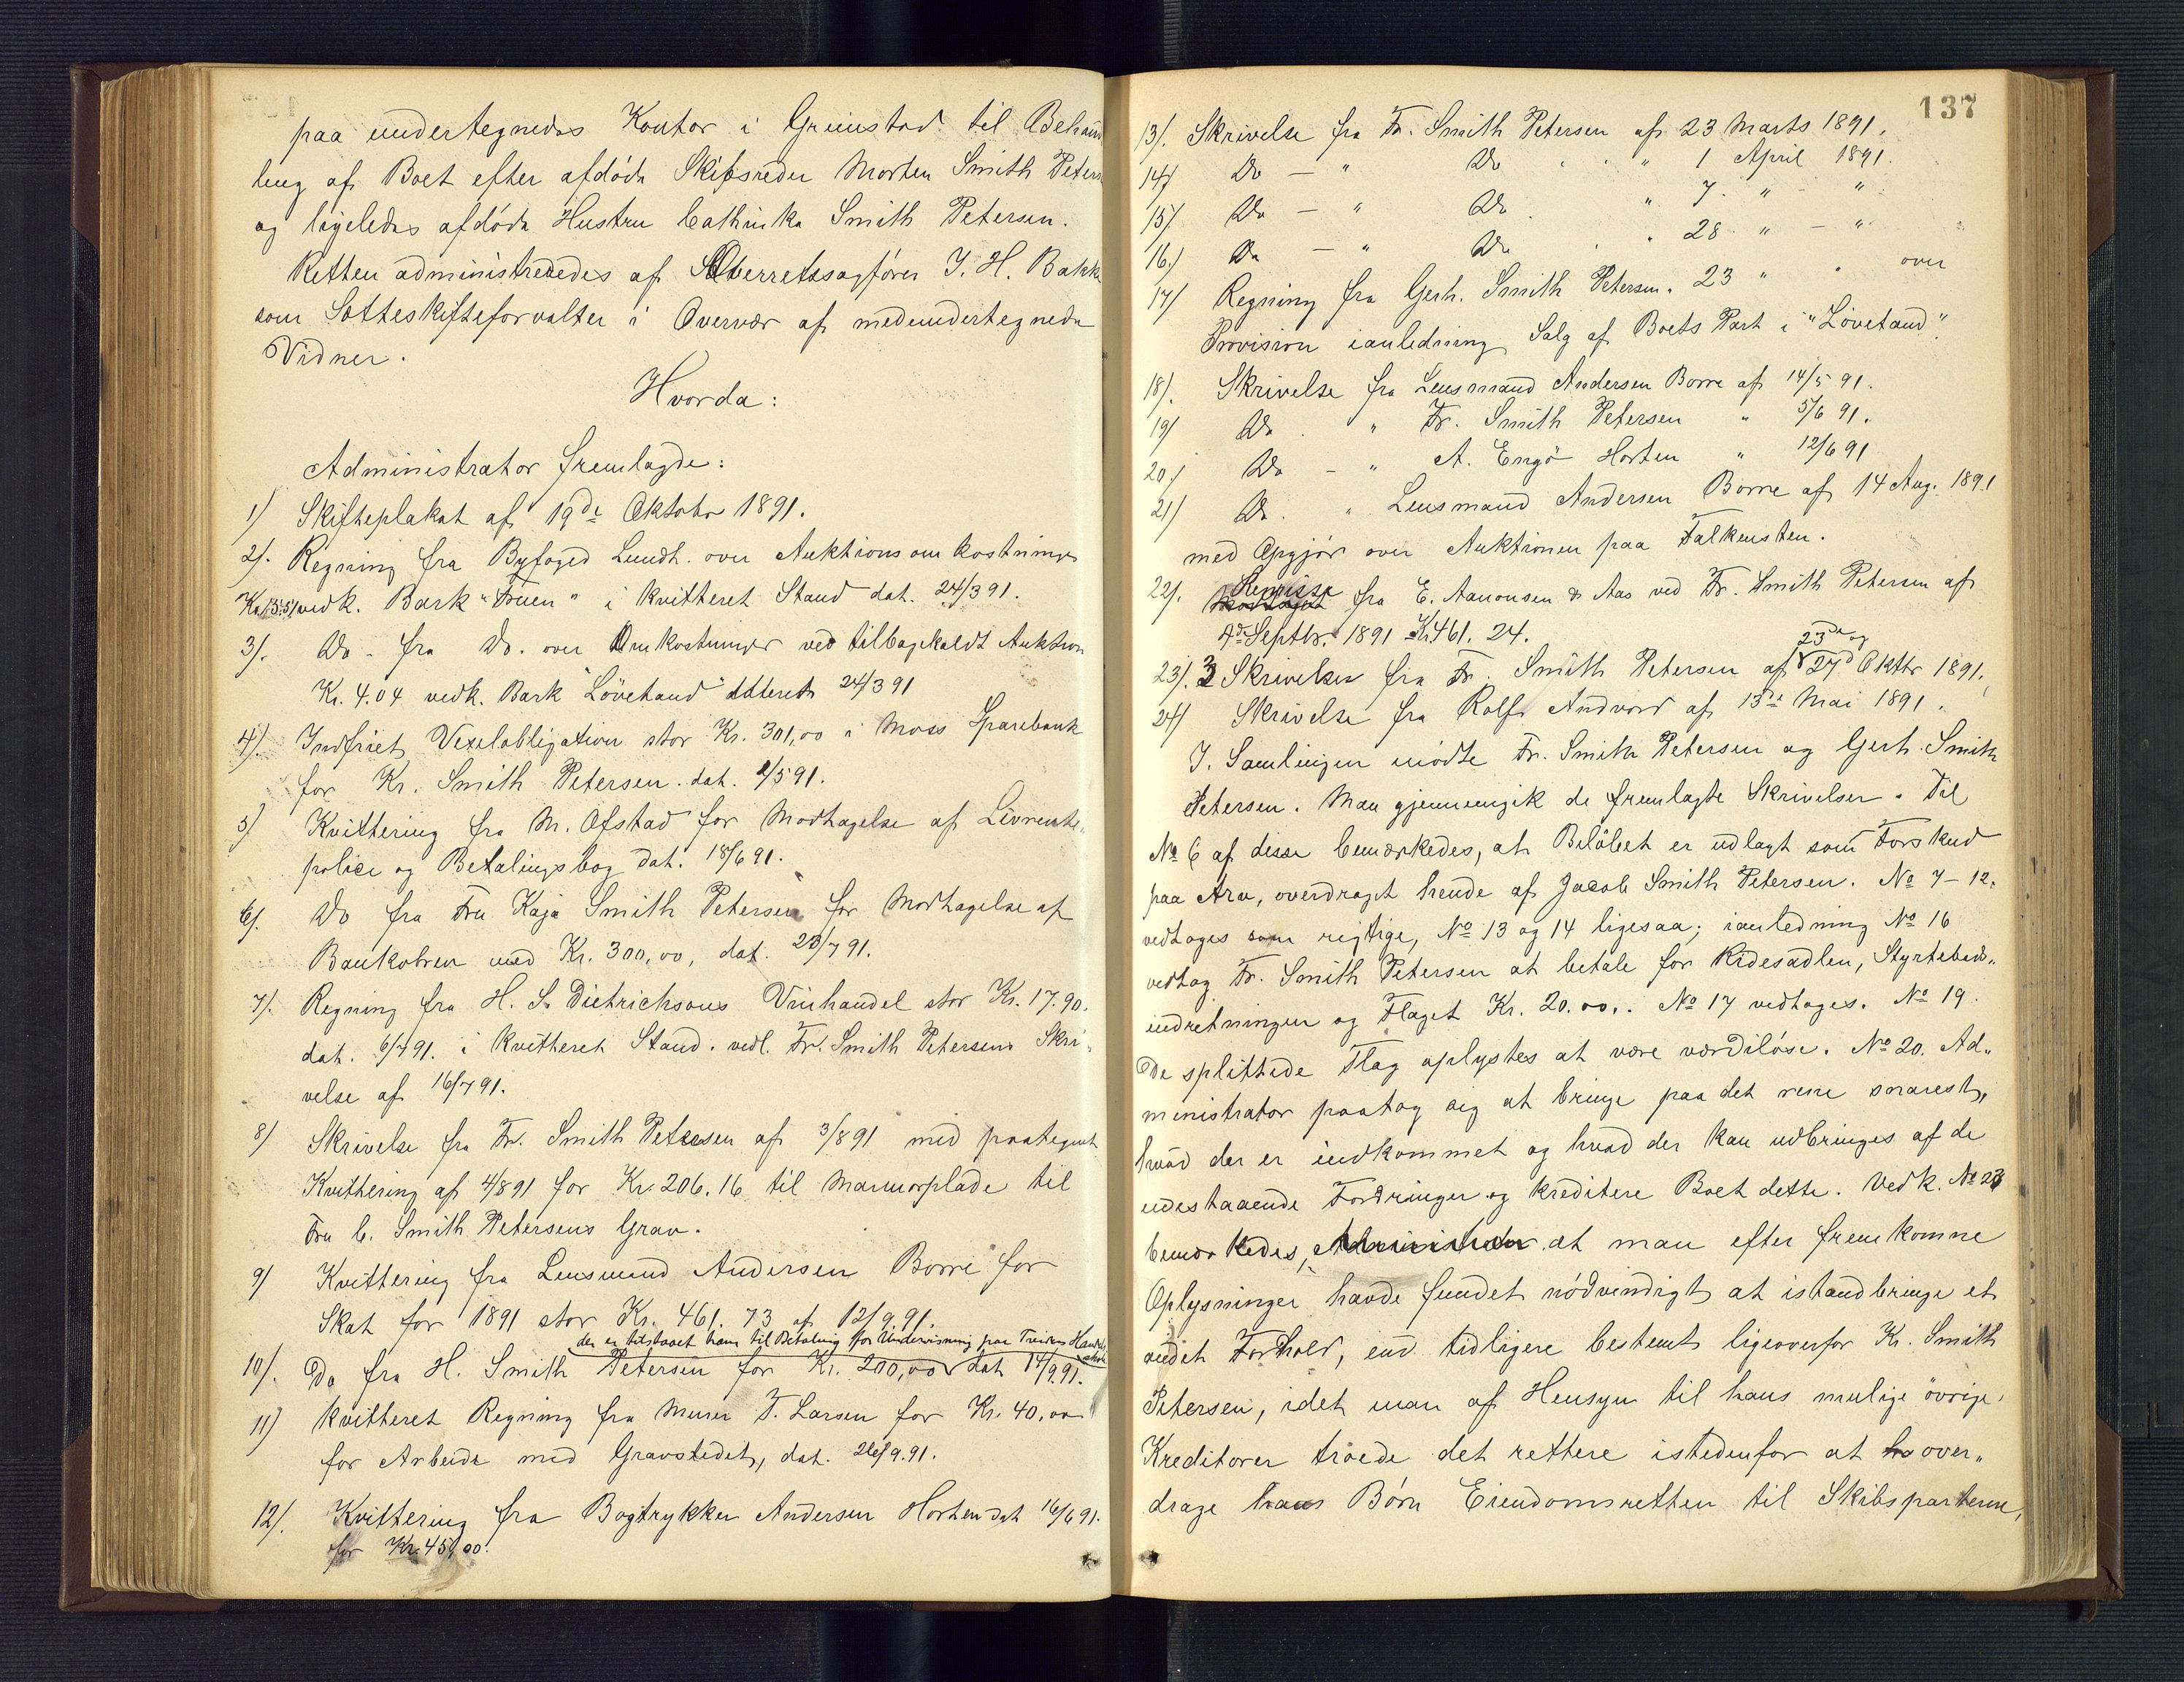 paa undertegnedes Kontor i Grimstad til Behand
ling af Boet efter afdöde Skibsreder Morten Smith Peters
og ligeledes afdöde Hustru Cathinka Smith Petersen.
Retten administreredes af Overretssagförer J. H. Bakke
som Sotteskifteforvalter i Overvær af medundertegnede
Vidner.
Hvorda:
Administrator fremlagde:
1) Skifteplakat af 19de Oktober 1891.
2). Regning fra Byfoged Lundh. over Auktionsomkostninger
vedk. Bark "Fruen" i kvitteret Stand dat. 24/3 91.
3). Do. fra Do. over Omkostninger ved tilbagekaldt Auktion
Kr. 4.04 vedk. Bark "Lövetand" dat. 24/3 91
4). Indfriet Vexelobligation stor Kr. 301,00 i Moss Sparebank
for Kr. Smith Petersen. dat. 2/5 91.
5) Kvittering fra M. Ofstad for Modtagelse af Livrente-
police og Betalingsbog dat. 18/6 91.
6). Do fra Fru Kaja Smith Petersen for Modtagelse af
Bankobren med Kr. 300,00, dat. 23/7 91.
7). Regning fra H. S. Dietrichsons Vinhandel stor Kr. 17.90.
dat. 6/7 91. i kvitteret Stand. vedl. Fr. Smith Petersens Skri-
velse af 16/7 91.
8) Skrivelse fra Fr. Smith Petersen af 3/8 91 med paategnet
Kvittering af 4/8 91 for Kr. 206.16 til Marmorplade til
Fru C. Smith Petersens Grav.
9) Kvittering fra Lensmand Andersen Borre for
Skat for 1891 stor Kr. 461.73 af 12/9.91.
der er tilstaaet ham til Betaling for Undervisning paa Treiders Handels
skole
10). Do fra H. Smith Petersen for Kr. 200,00 dat 14/9.91.
11) Kvitteret Regning fra Murer T. Larsen for Kr. 40,00
for Arbeide med Gravstedet, dat. 26/9.91.
12). Kvittering fra Bogtrykker Andersen Horten dat 16/6 91.
for Kr. 45,00.
137
13). Skrivelse fra Fr. Smith Petersen af 23 Marts 1891.
14) Do — " Do " 1 April 1891.
15). Do — " Do. " 7. " - "
16.) Do — " Do " 28. " - "
17) Regning fra Gerh. Smith Petersen. 23 " " over
Provision ianledning Salg af Boets Part i "Lövetand".
18). Skrivelse fra Lensmand Andersen Borre af 14/5 91.
19) Do. " Fr. Smith Petersen " 5/6 91.
20.) Do - " A. Engö Horten " 12/6 91
21) Do. " Lensmand Andersen Borre af 14 Aug. 1891
med Opgjör over Auktionen paa Falkensten.
22). Remisse fra E. Aanonsen & Aas ved Fr. Smith Petersen af
4de Septbr. 1891 Kr. 461.24.
23de og
23). 2 Skrivelser fra Fr. Smith Petersen af 27d Oktbr 1891.
24) Skrivelse fra Rolf Andvord af 13de Mai 1891.
I. Samlingen mödte Fr. Smith Petersen og Gerh. Smith
Petersen. Man gjennemgik de fremlagte Skrivelser. Til
No 6 af disse bemærkedes, at Belöbet er udlagt som Forskud
paa Arv, overdraget hende af Jacob Smith Petersen. No 7-12.
vedtoges som rigtige, No 13 og 14 ligesaa; ianledning No 16
vedtog Fr. Smith Petersen at betale for Ridesadlen, Styrtebads-
indretningen og Flaget Kr. 20.00.. No 17 vedtoges. No 19.
De splittede Flag oplystes at være værdilöse. No 20. Ad-
ministrator paatog sig at bringe paa det rene snarest,
hvad der er indkommet og hvad der kan udbringes af de
udestaaende Fordringer og kreditere Boet dette. Vedk. No 23
bemærkedes, at man efter fremkomne
Oplysninger havde fundet nödvendigt at istandbringe et
andet Forhold, end tidligere bestemt ligeoverfor Kr. Smith
Petersen, idet man af Hensyn til hans mulige övrige
Kreditorer troede det rettere istedenfor at over-
drage hans Börn Eiendomsretten til Skibsparterne,